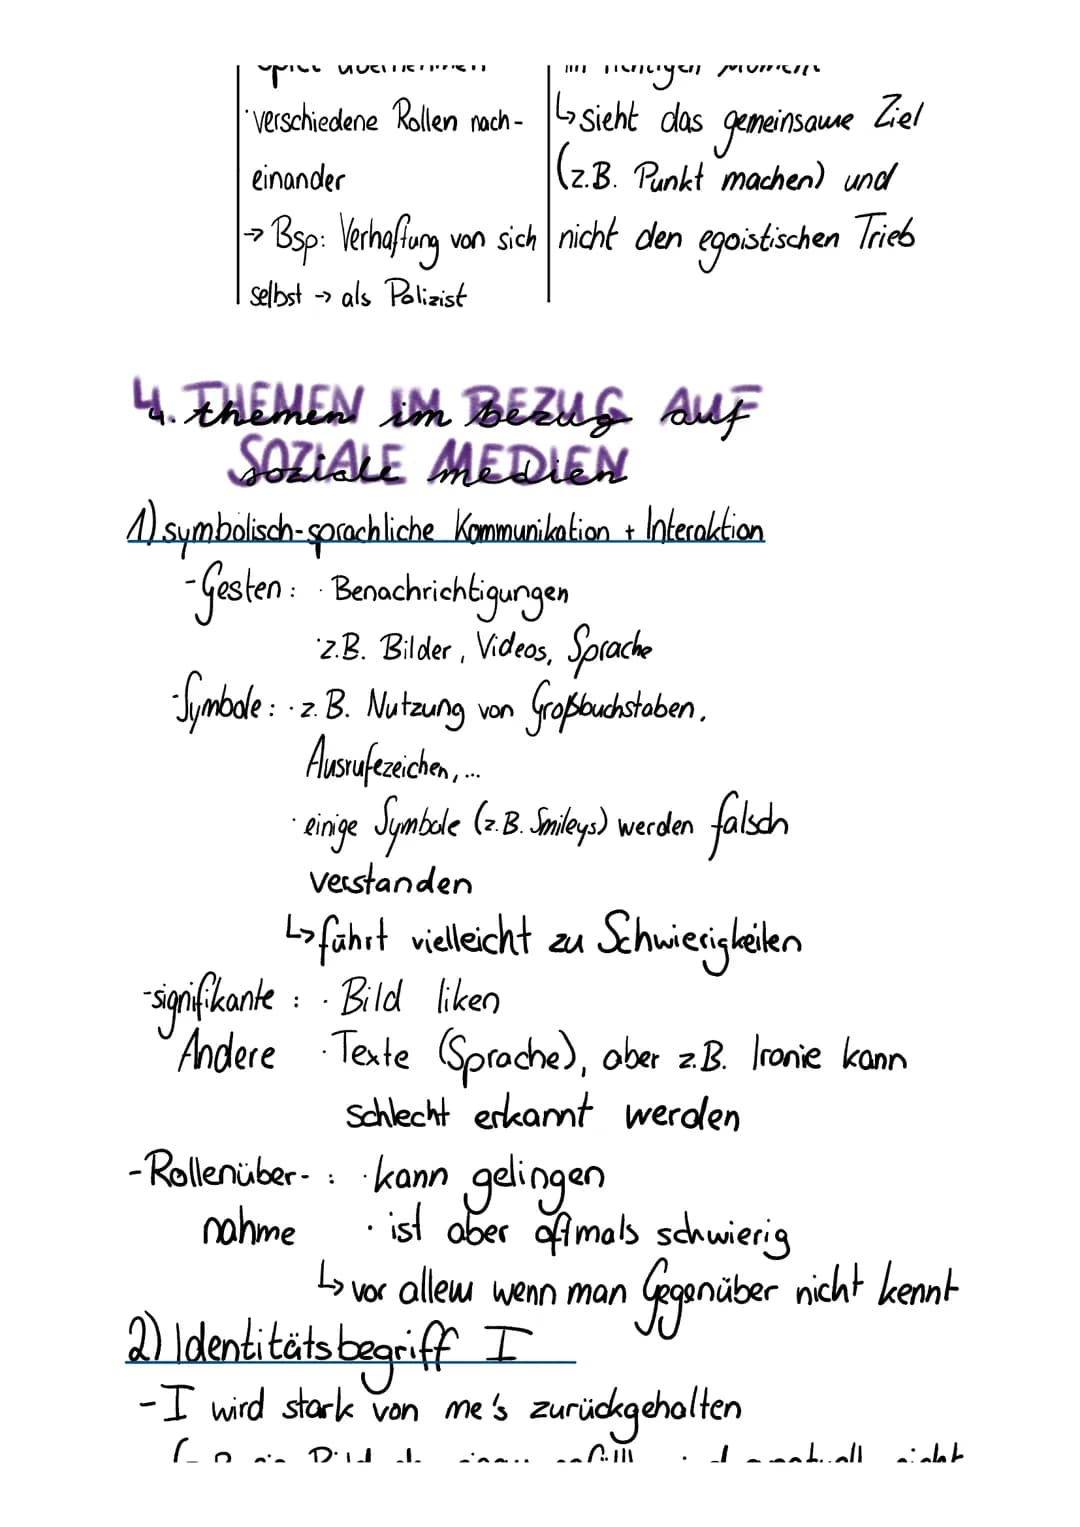 Spiel übernehmen
im richtigen Moment
· verschiedene Rollen nach-
einander
→ Bsp: Verhaftung von sich
selbst → als Polizist
↳ sieht das gemeinsame Ziel
(z.B. Punkt machen) und
nicht den egoistischen Trieb
4. THEMEN IM BEZUG AUF
SOZIALE MEDIEN
1) symbolisch-sprachliche Kommunikation + Interaktion
- Gesten: · Benachrichtigungen
· z.B. Bilder, Videos, Sprache
- Symbole: · z.B. Nutzung von Großbuchstaben,
Ausrufezeichen,...
· einige Symbole (z.B. Smileys) werden falsch
verstanden
↳ führt vielleicht zu Schwierigkeiten
- signifikante : · Bild liken
Andere · Texte (Sprache), aber z.B. Ironie kann
schlecht erkannt werden
- Rollenüber- : · kann gelingen
nahme · ist aber oftmals schwierig
↳ vor allem wenn man Gegenüber nicht kennt
2) Identitätsbegriff I
- I wird stark von me's zurückgehalten